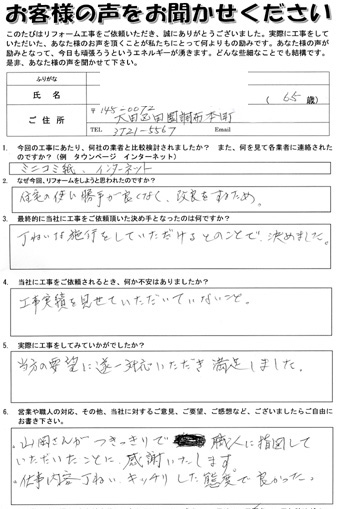 お客様の声をお聞かせください
このたびはリフォーム工事をご依頼いただき、誠にありがとうございました。実際に工事をして
いただいた、あなた様のお声を頂くことが私たちにとって何よりもの励みです。あなた様の声が
励みとなって、今日も頑張ろうというエネルギーが湧きます。どんな些細なことでも結構です。
是非、あなた様の声を聞かせて下さい。
ふりがな
氏 名
( 65 歳)
ご 住 所
〒145-0072
大田区田園調布本町
TEL 3721-5567 Email
1. 今回の工事にあたり、何社の業者と比較検討されましたか? また、何を見て各業者に連絡された
のですか?(例 タウンページ インターネット)
ミニコミ紙、インターネット
2. なぜ今回、リフォームをしようと思われたのですか?
住宅の使い勝手が良くなく、改良をするため。
3. 最終的に当社に工事をご依頼頂いた決め手となったのは何ですか?
丁ねいな施行をしていただけるとのことで、決めました。
4. 当社に工事をご依頼されるとき、何か不安はありましたか?
工事実績を見せていただいていないこと。
5. 実際に工事をしてみていかがでしたか?
当方の要望に逐一対応いただき満足しました。
6. 営業や職人の対応、その他、当社に対するご意見、ご要望、ご感想など、ございましたらご自由に
お書き下さい。
・山岡さんがつきっきりで 職人に指図して
いただいたことに、感謝いたします。
・仕事内容丁ねい、キッチリした態度で良かった。